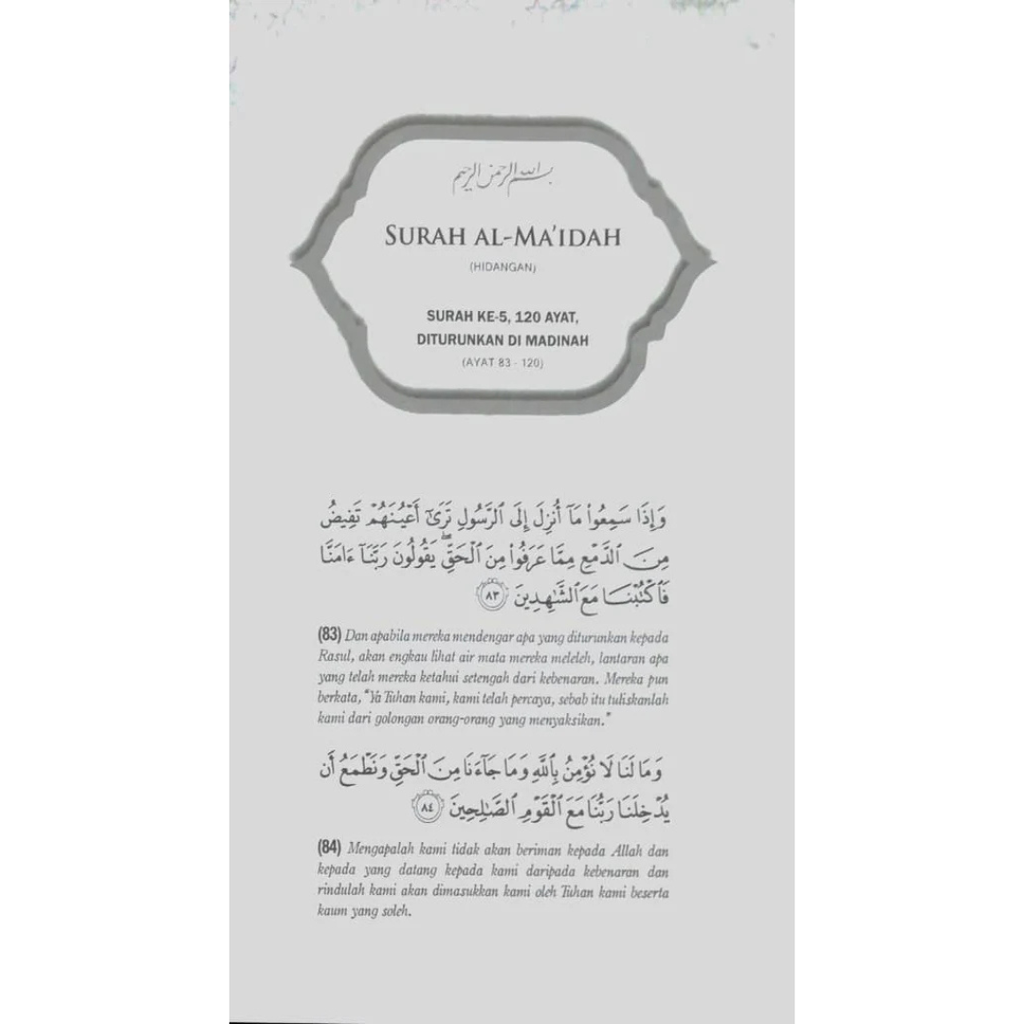 بسم الله الرحمن الرحيم
SURAH AL-MA'IDAH
(HIDANGAN)
SURAH KE-5, 120 AYAT,
DITURUNKAN DI MADINAH
(AYAT 83 - 120)
وَإِذَا سَمِعُوا۟ مَآ أُنزِلَ إِلَى ٱلرَّسُولِ تَرَىٰٓ أَعْيُنَهُمْ تَفِيضُ
مِنَ ٱلدَّمْعِ مِمَّا عَرَفُوا۟ مِنَ ٱلْحَقِّ ۖ يَقُولُونَ رَبَّنَآ ءَامَنَّا
فَٱكْتُبْنَا مَعَ ٱلشَّٰهِدِينَ ٨٣
(83) Dan apabila mereka mendengar apa yang diturunkan kepada
Rasul, akan engkau lihat air mata mereka meleleh, lantaran apa
yang telah mereka ketahui setengah dari kebenaran. Mereka pun
berkata, "Ya Tuhan kami, kami telah percaya, sebab itu tuliskanlah
kami dari golongan orang-orang yang menyaksikan."
وَمَا لَنَا لَا نُؤْمِنُ بِٱللَّهِ وَمَا جَآءَنَا مِنَ ٱلْحَقِّ وَنَطْمَعُ أَن
يُدْخِلَنَا رَبُّنَا مَعَ ٱلْقَوْمِ ٱلصَّٰلِحِينَ ٨٤
(84) Mengapalah kami tidak akan beriman kepada Allah dan
kepada yang datang kepada kami daripada kebenaran dan
rindulah kami akan dimasukkan kami oleh Tuhan kami beserta
kaum yang soleh.